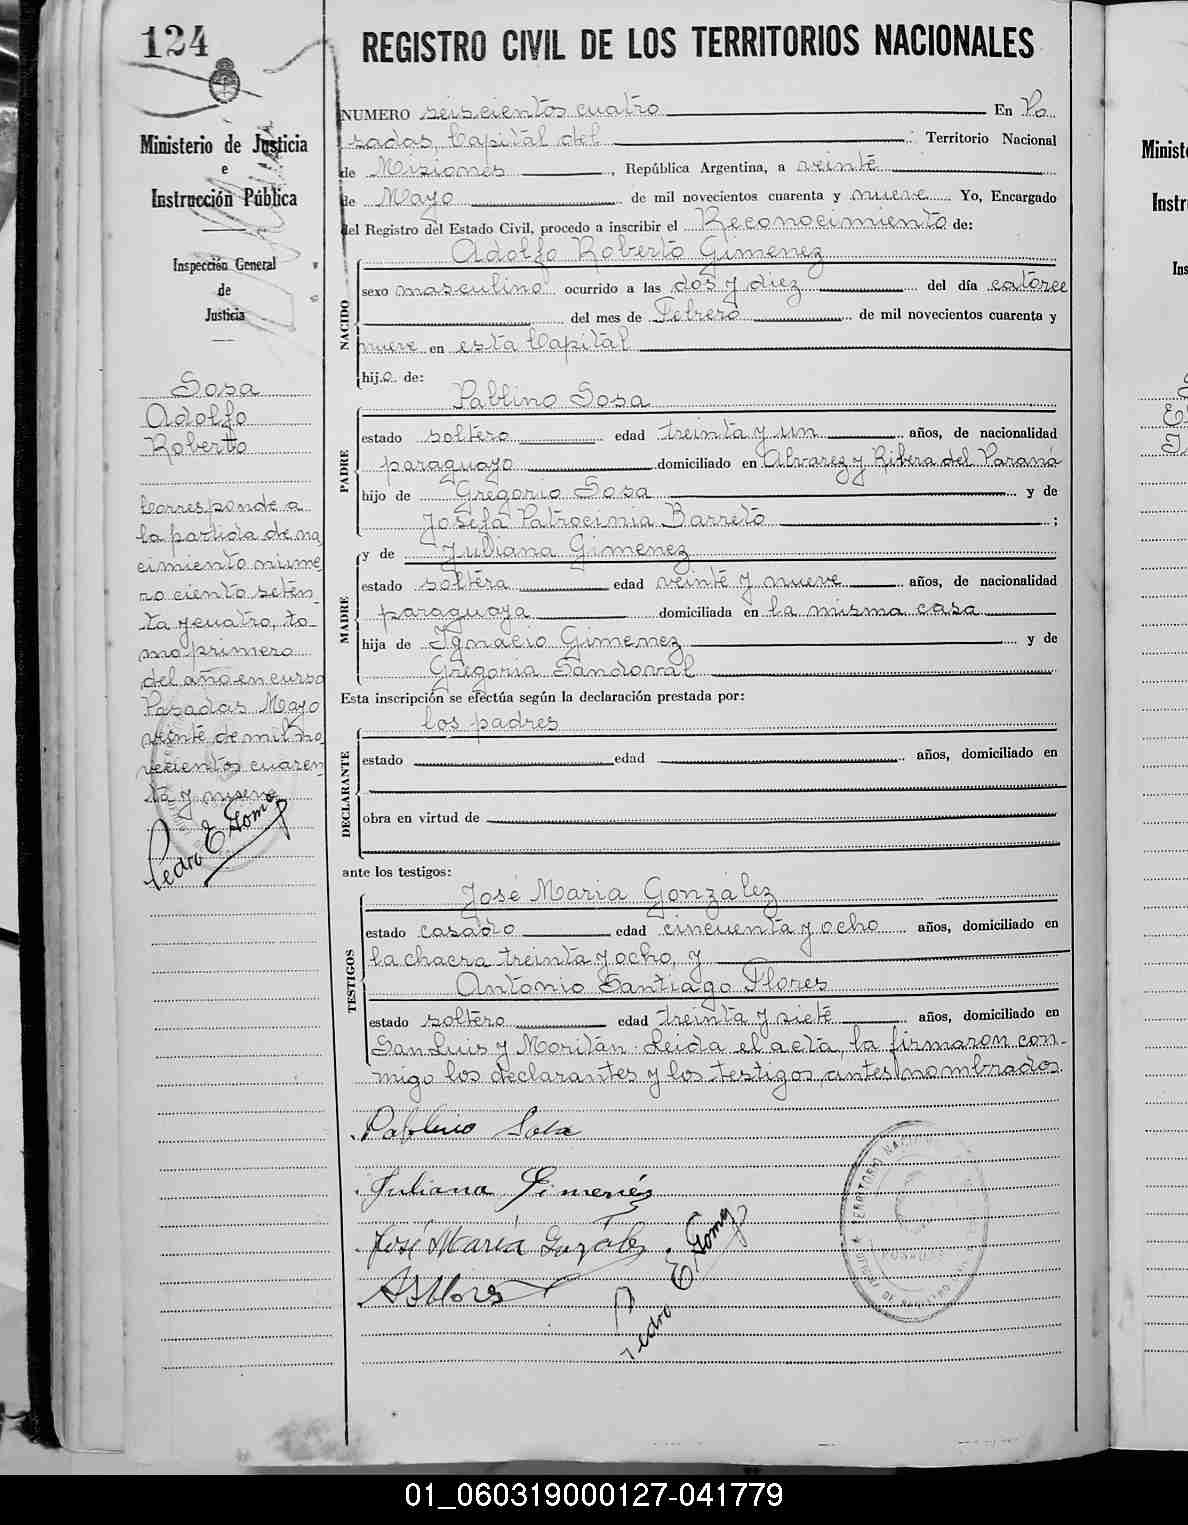 124
REGISTRO CIVIL DE LOS TERRITORIOS NACIONALES
Ministerio de Justicia
e
Instrucción Pública
Inspección General
de
Justicia
Sosa
Adolfo
Roberto
Corresponde a
la partida de na
cimiento núme
ro ciento seten
ta y cuatro, to-
mo primero
del año en curso
Posadas, Mayo
veinte de mil no
vecientos cuaren
ta y nueve
Pedro E Gomez
NUMERO seiscientos cuatro En Po
sadas, Capital del Territorio Nacional
de Misiones, República Argentina, a veinte
de Mayo de mil novecientos cuarenta y nueve Yo, Encargado
del Registro del Estado Civil, procedo a inscribir el Reconocimiento de:
Adolfo Roberto Gimenez
NACIDO
sexo masculino ocurrido a las dos y diez del día catorce
del mes de Febrero de mil novecientos cuarenta y
nueve en esta Capital
hijo de:
PADRE
Pablino Sosa
estado soltero edad treinta y un años, de nacionalidad
paraguayo domiciliado en Alvarez y Ribera del Paraná
hijo de Gregorio Sosa y de
Josefa Patrocinia Barreto;
MADRE
y de Juliana Gimenez
estado soltera edad veinte y nueve años, de nacionalidad
paraguaya domiciliada en la misma casa
hija de Ignacio Gimenez y de
Gregoria Sandoval
Esta inscripción se efectúa según la declaración prestada por:
DECLARANTE
los padres
estado edad años, domiciliado en
obra en virtud de
ante los testigos:
TESTIGOS
José María González
estado casado edad cincuenta y ocho años, domiciliado en
la chacra treinta y ocho, y
Antonio Santiago Flores
estado soltero edad treinta y siete años, domiciliado en
San Luis y Moritán. Leida el acta, la firmaron con-
migo los declarantes y los testigos antes nombrados.
Pablino Sosa
Juliana Gimenés
José María Gozález
ASFlores
Pedro E. Gomez
TERRITORIO NAC
POSADAS
Minist
Instr
Ins
01_060319000127-041779